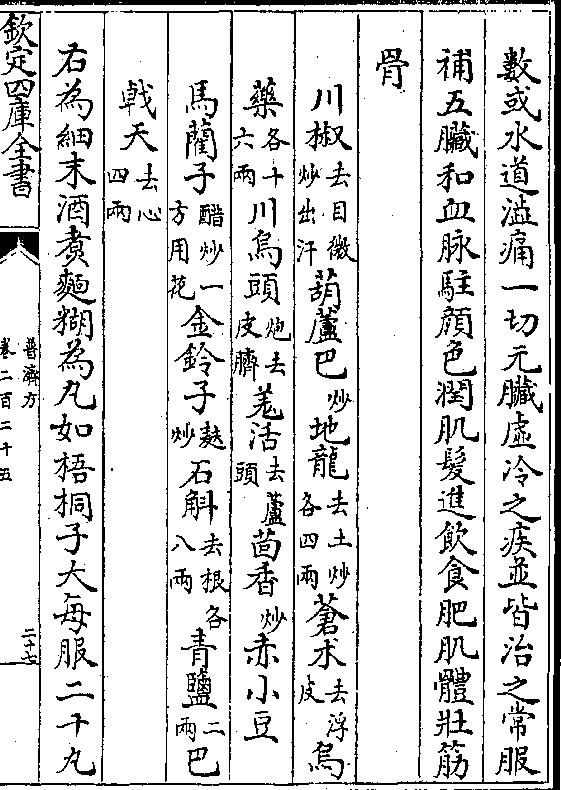 數或水道澁痛一切元臟虛冷之疾並皆治之常服
補五臟和血脉駐顔色潤肌髮進飲食肥肌體壯筋
骨
川椒去目微炒出汗葫蘆巴炒地龍去土炒各四兩蒼朮去浮皮烏
藥各十六兩川烏頭炮去皮臍羗活去蘆頭茴香炒赤小豆
馬藺子醋炒一方用花金鈴子麩炒石斛去根各八兩青鹽二兩巴
戟天去心四兩
右為細末酒煮麵糊為丸如梧桐子大每服二十丸
欽定四庫全書
普濟方
卷二百二十五
二十七